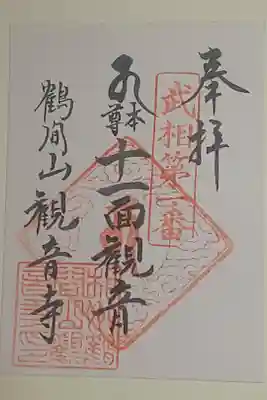 奉拝
武相第二番
本尊
十一面観音
鶴間山観音寺